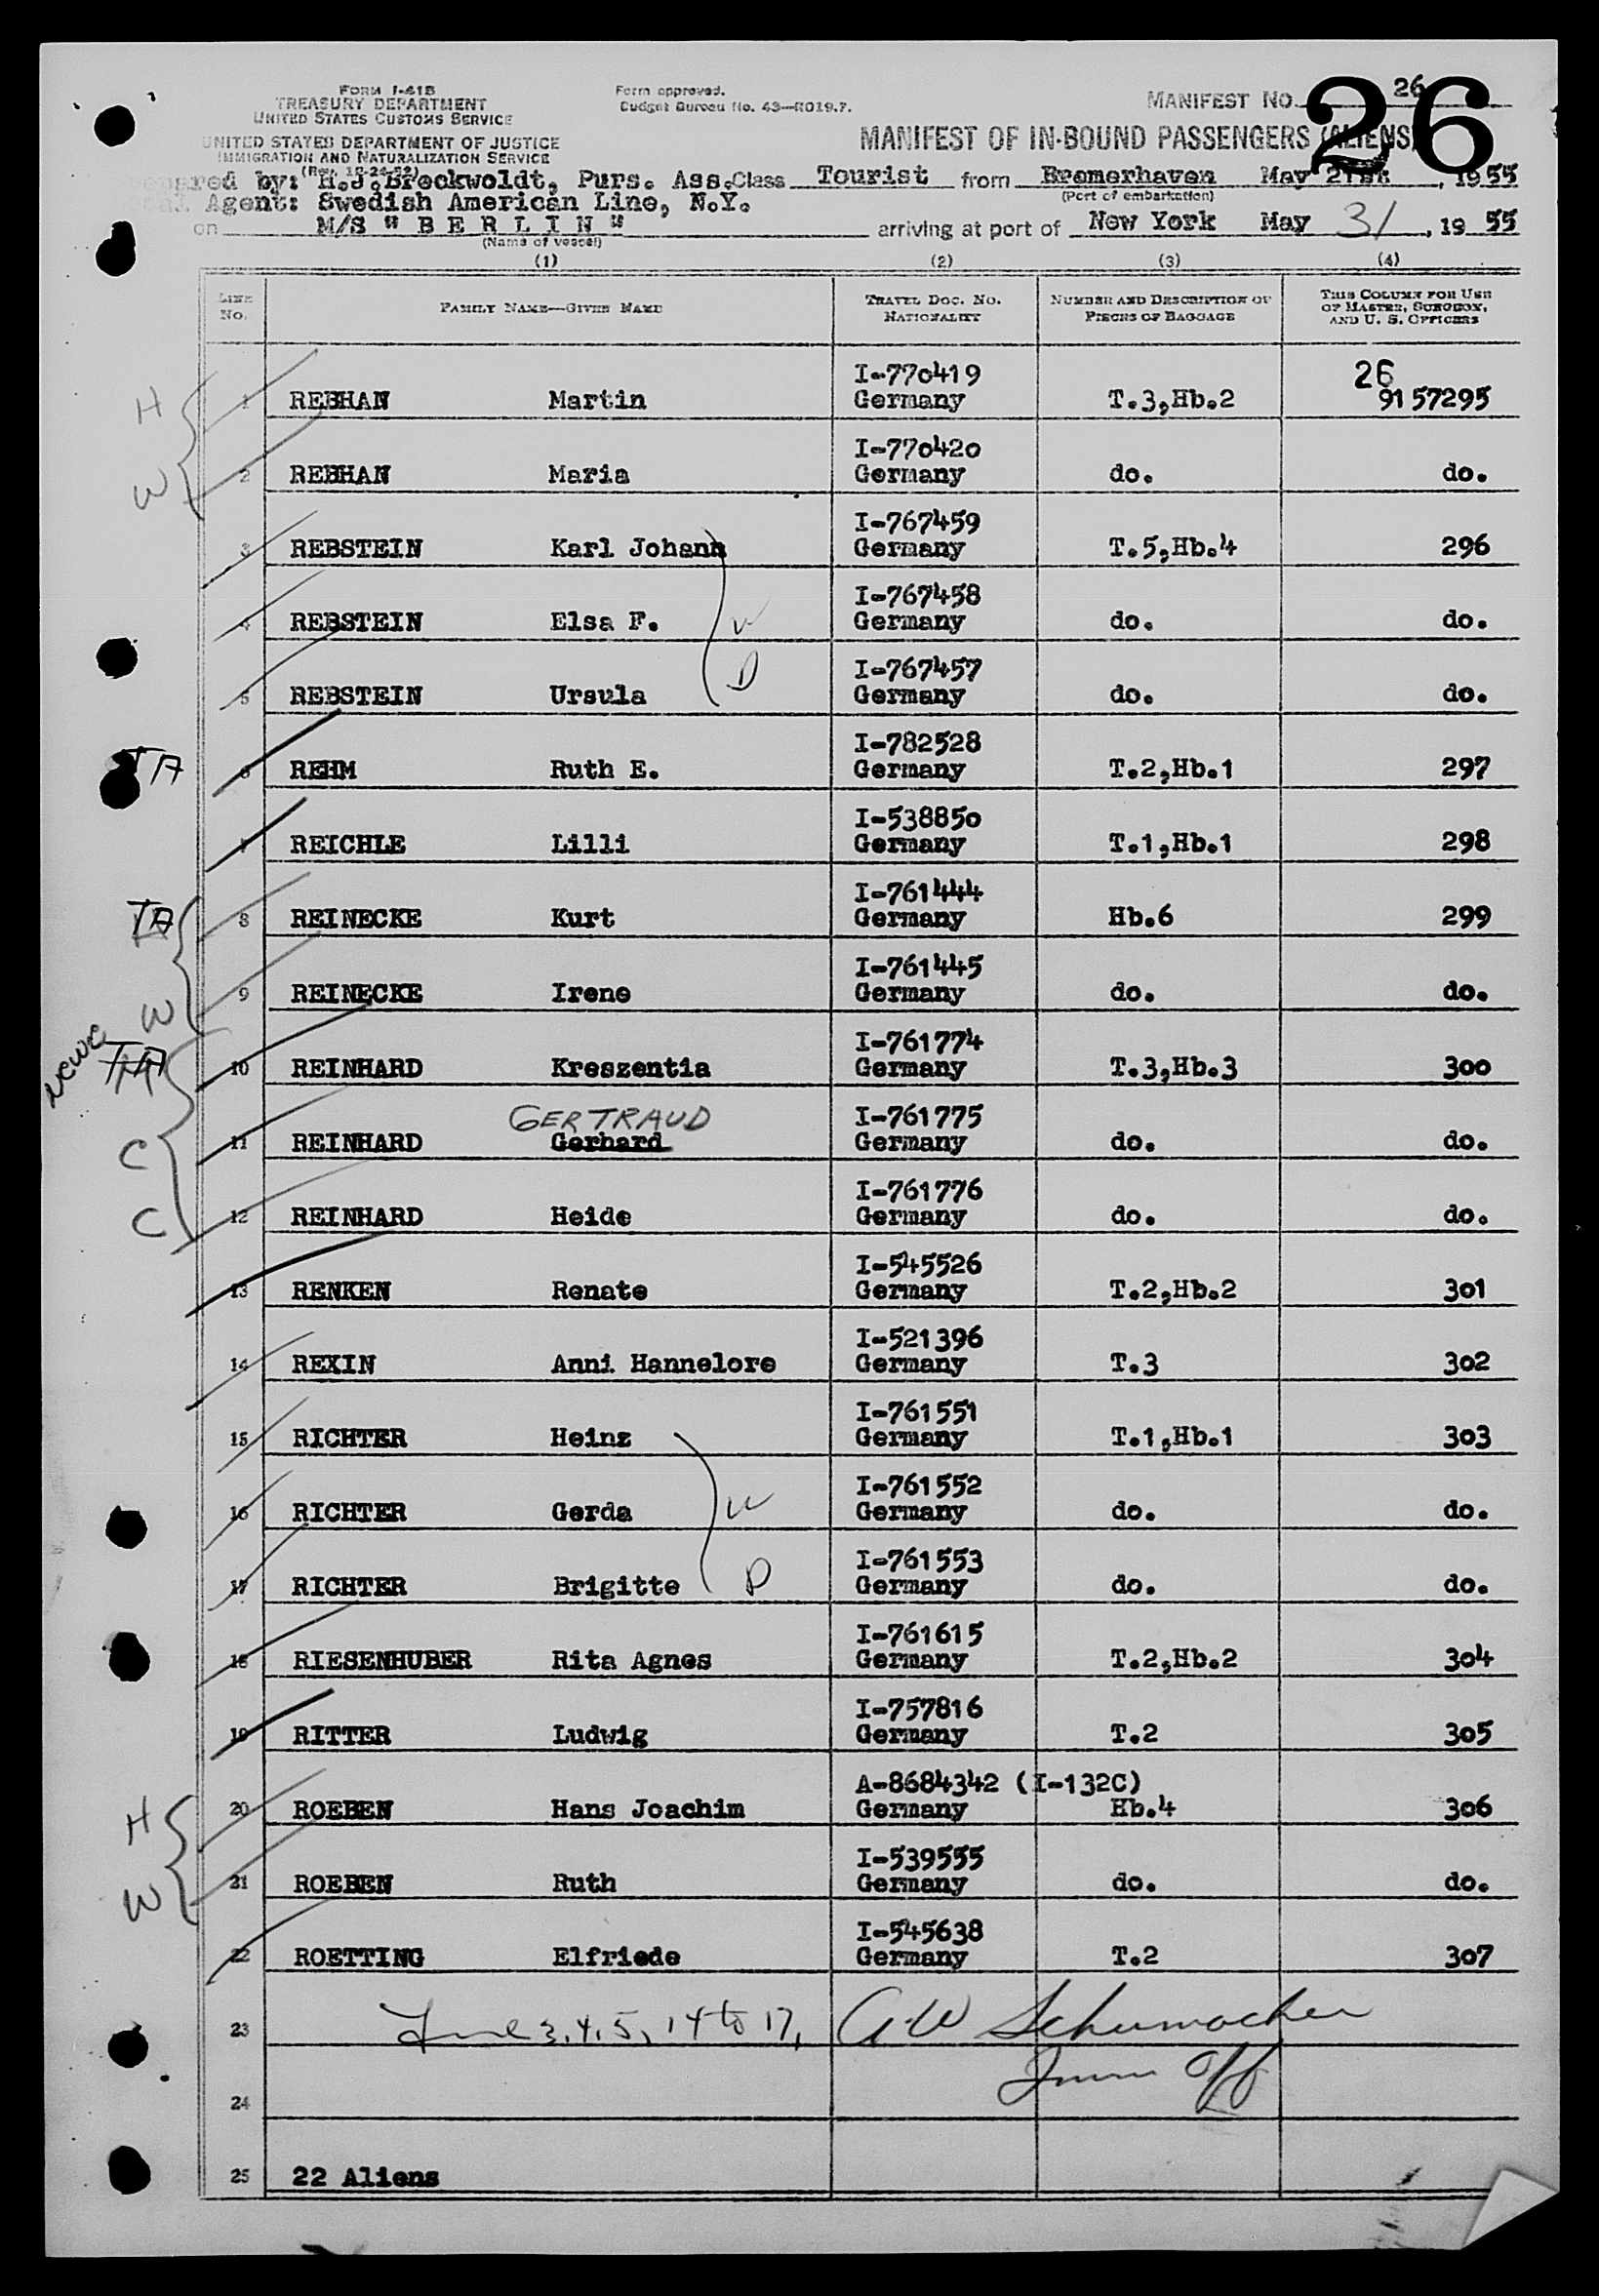 FORM I-418
TREASURY DEPARTMENT
UNITED STATES CUSTOMS SERVICE
UNITED STATES DEPARTMENT OF JUSTICE
IMMIGRATION AND NATURALIZATION SERVICE
(Rev. 12-24-52)
Form approved.
Budget Bureau No. 43—R019.7.
MANIFEST NO. 26
26
MANIFEST OF IN-BOUND PASSENGERS (ALIENS)
by: H.J. Brockwoldt, Purs. Ass. Class Tourist from Bremerhaven May 21st, 1955
(Port of embarkation)
Agent: Swedish American Line, N.Y.
on M/S " B E R L I N " arriving at port of New York May 31, 19 55
(Name of vessel)
(1) (2) (3) (4)
LINE No. FAMILY NAME—GIVEN NAME TRAVEL DOC. No. NATIONALITY NUMBER AND DESCRIPTION OF PIECES OF BAGGAGE THIS COLUMN FOR USE OF MASTER, SURGEON, AND U. S. OFFICERS
I-770419 26
H 1 REBHAN Martin Germany T.3,Hb.2 91 57295
I-770420
W 2 REBHAN Maria Germany do. do.
I-767459
3 REBSTEIN Karl Johann Germany T.5,Hb.4 296
I-767458
4 REBSTEIN Elsa F. W Germany do. do.
I-767457
5 REBSTEIN Ursula D Germany do. do.
I-782528
TA 6 REHM Ruth E. Germany T.2,Hb.1 297
I-538850
7 REICHLE Lilli Germany T.1,Hb.1 298
I-761444
TA 8 REINECKE Kurt Germany Hb.6 299
I-761445
W 9 REINECKE Irene Germany do. do.
I-761774
TA 10 REINHARD Kreszentia Germany T.3,Hb.3 300
GERTRAUD I-761775
C 11 REINHARD Gerhard Germany do. do.
I-761776
C 12 REINHARD Heide Germany do. do.
I-545526
13 RENKEN Renate Germany T.2,Hb.2 301
I-521396
14 REXIN Anni Hannelore Germany T.3 302
I-761551
15 RICHTER Heinz Germany T.1,Hb.1 303
I-761552
16 RICHTER Gerda W Germany do. do.
I-761553
17 RICHTER Brigitte D Germany do. do.
I-761615
18 RIESENHUBER Rita Agnes Germany T.2,Hb.2 304
I-757816
19 RITTER Ludwig Germany T.2 305
A-8684342 (I-132C)
H 20 ROEBEN Hans Joachim Germany Hb.4 306
I-539555
W 21 ROEBEN Ruth Germany do. do.
I-545638
22 ROETTING Elfriede Germany T.2 307
23 Line 3,4,5, 14 to 17, A.W Schumacher
24 Imm Off
25 22 Aliens